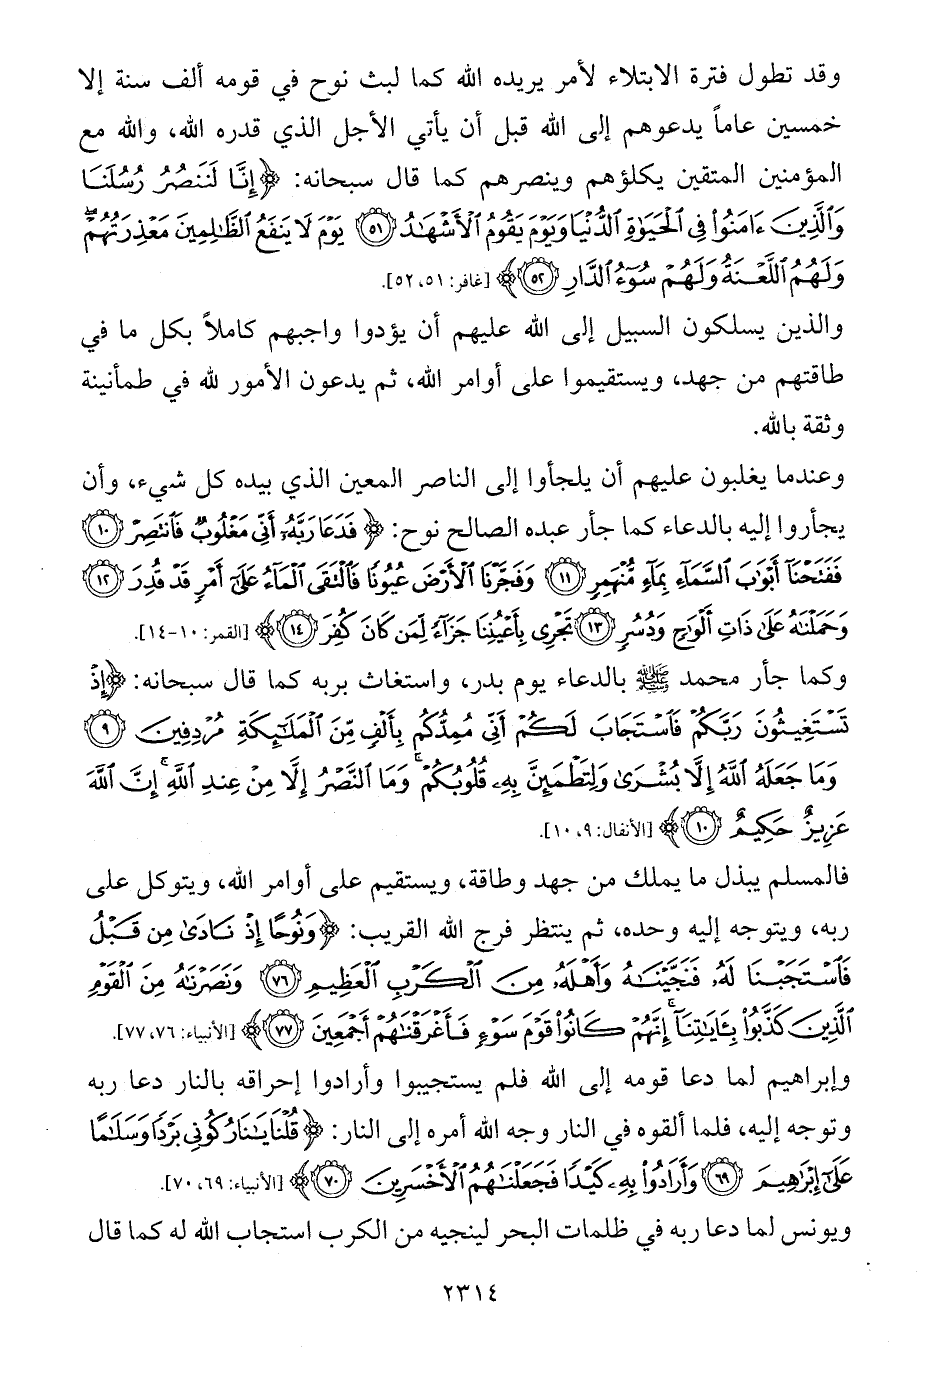 وقد تطول فترة الابتلاء لأمر يريده الله كما لبث نوح في قومه ألف سنة إلا
خمسين عاماً يدعوهم إلى الله قبل أن يأتي الأجل الذي قدره الله، والله مع
المؤمنين المتقين يكلؤهم وينصرهم كما قال سبحانه: ﴿إِنَّا لَنَنصُرُ رُسُلَنَا
وَالَّذِينَ ءَامَنُوا۟ فِي الْحَيَوٰةِ الدُّنْيَا وَيَوْمَ يَقُومُ الْأَشْهَٰدُ ٥١ يَوْمَ لَا يَنفَعُ الظَّٰلِمِينَ مَعْذِرَتُهُمْ ۖ
وَلَهُمُ اللَّعْنَةُ وَلَهُمْ سُوٓءُ الدَّارِ ٥٢﴾ [غافر: ٥١، ٥٢].
والذين يسلكون السبيل إلى الله عليهم أن يؤدوا واجبهم كاملاً بكل ما في
طاقتهم من جهد، ويستقيموا على أوامر الله، ثم يدعون الأمور لله في طمأنينة
وثقة بالله.
وعندما يغلبون عليهم أن يلجأوا إلى الناصر المعين الذي بيده كل شيء، وأن
يجأروا إليه بالدعاء كما جأر عبده الصالح نوح: ﴿فَدَعَا رَبَّهُۥٓ أَنِّي مَغْلُوبٌ فَانتَصِرْ ١٠
فَفَتَحْنَآ أَبْوَٰبَ السَّمَآءِ بِمَآءٍ مُّنْهَمِرٍ ١١ وَفَجَّرْنَا الْأَرْضَ عُيُونًا فَالْتَقَى الْمَآءُ عَلَىٰٓ أَمْرٍ قَدْ قُدِرَ ١٢
وَحَمَلْنَٰهُ عَلَىٰ ذَاتِ أَلْوَٰحٍ وَدُسُرٍ ١٣ تَجْرِي بِأَعْيُنِنَا جَزَآءً لِّمَن كَانَ كُفِرَ ١٤﴾ [القمر: ١٠-١٤].
وكما جأر محمد ﷺ بالدعاء يوم بدر، واستغاث بربه كما قال سبحانه: ﴿إِذْ
تَسْتَغِيثُونَ رَبَّكُمْ فَاسْتَجَابَ لَكُمْ أَنِّي مُمِدُّكُم بِأَلْفٍ مِّنَ الْمَلَٰٓئِكَةِ مُرْدِفِينَ ٩
وَمَا جَعَلَهُ اللَّهُ إِلَّا بُشْرَىٰ وَلِتَطْمَئِنَّ بِهِۦ قُلُوبُكُمْ ۚ وَمَا النَّصْرُ إِلَّا مِنْ عِندِ اللَّهِ ۚ إِنَّ اللَّهَ
عَزِيزٌ حَكِيمٌ ١٠﴾ [الأنفال: ٩، ١٠].
فالمسلم يبذل ما يملك من جهد وطاقة، ويستقيم على أوامر الله، ويتوكل على
ربه، ويتوجه إليه وحده، ثم ينتظر فرج الله القريب: ﴿وَنُوحًا إِذْ نَادَىٰ مِن قَبْلُ
فَاسْتَجَبْنَا لَهُۥ فَنَجَّيْنَٰهُ وَأَهْلَهُۥ مِنَ الْكَرْبِ الْعَظِيمِ ٧٦ وَنَصَرْنَٰهُ مِنَ الْقَوْمِ
الَّذِينَ كَذَّبُوا۟ بِـَٔايَٰتِنَآ ۚ إِنَّهُمْ كَانُوا۟ قَوْمَ سَوْءٍ فَأَغْرَقْنَٰهُمْ أَجْمَعِينَ ٧٧﴾ [الأنبياء: ٧٦، ٧٧].
وإبراهيم لما دعا قومه إلى الله فلم يستجيبوا وأرادوا إحراقه بالنار دعا ربه
وتوجه إليه، فلما ألقوه في النار وجه الله أمره إلى النار: ﴿قُلْنَا يَٰنَارُ كُونِي بَرْدًا وَسَلَٰمًا
عَلَىٰٓ إِبْرَٰهِيمَ ٦٩ وَأَرَادُوا۟ بِهِۦ كَيْدًا فَجَعَلْنَٰهُمُ الْأَخْسَرِينَ ٧٠﴾ [الأنبياء: ٦٩، ٧٠].
ويونس لما دعا ربه في ظلمات البحر لينجيه من الكرب استجاب الله له كما قال
٢٣١٤